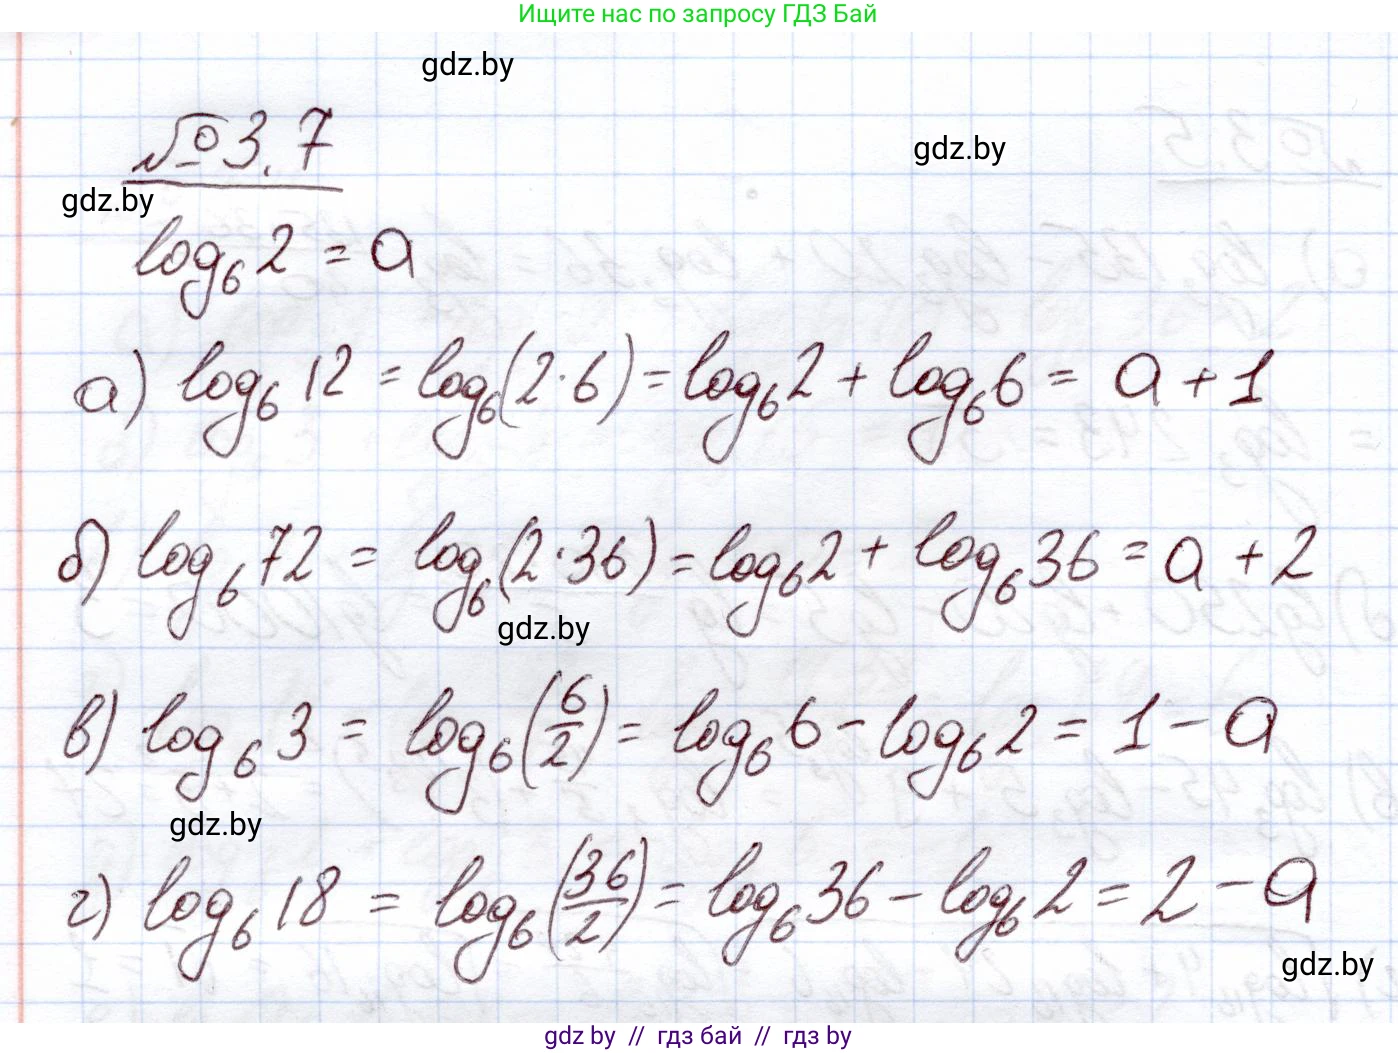 Ищите нас по запросу ГДЗ Бай
gdz.by
№3.7
gdz.by
gdz.by
log₆2 = a
а) log₆12 = log₆(2·6) = log₆2 + log₆6 = a + 1
б) log₆72 = log₆(2·36) = log₆2 + log₆36 = a + 2
gdz.by
в) log₆3 = log₆(6/2) = log₆6 - log₆2 = 1 - a
gdz.by
г) log₆18 = log₆(36/2) = log₆36 - log₆2 = 2 - a
gdz.by
gdz by // гдз бай // гдз by